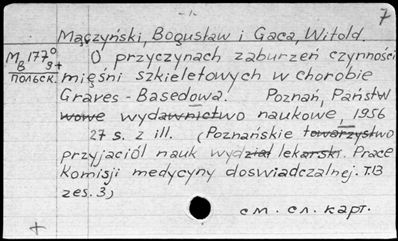 7
Mączyński, Bogusław i Gaca, Witold.
М177⁰
В 9+
польск.
O przyczynach zaburzeń czynności
mięśni szkieletowych w chorobie
Graves - Basedowa. Poznań, Państw
wowe wydawnictwo naukowe, 1956
27 s. z ill. (Poznańskie towarzystwo
przyjaciół nauk wydział lekarski. Prace
Komisji medycyny doswiadczalnej. T.13
zes. 3)
см. сл. карт.
+